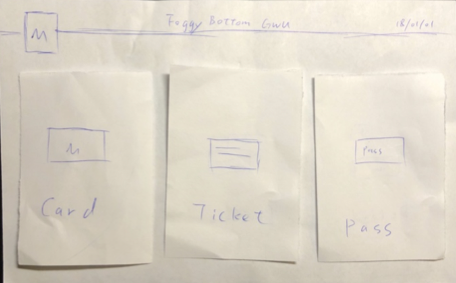 M
Foggy Bottom GWU
18/01/01
M
Card
Ticket
Pass
Pass